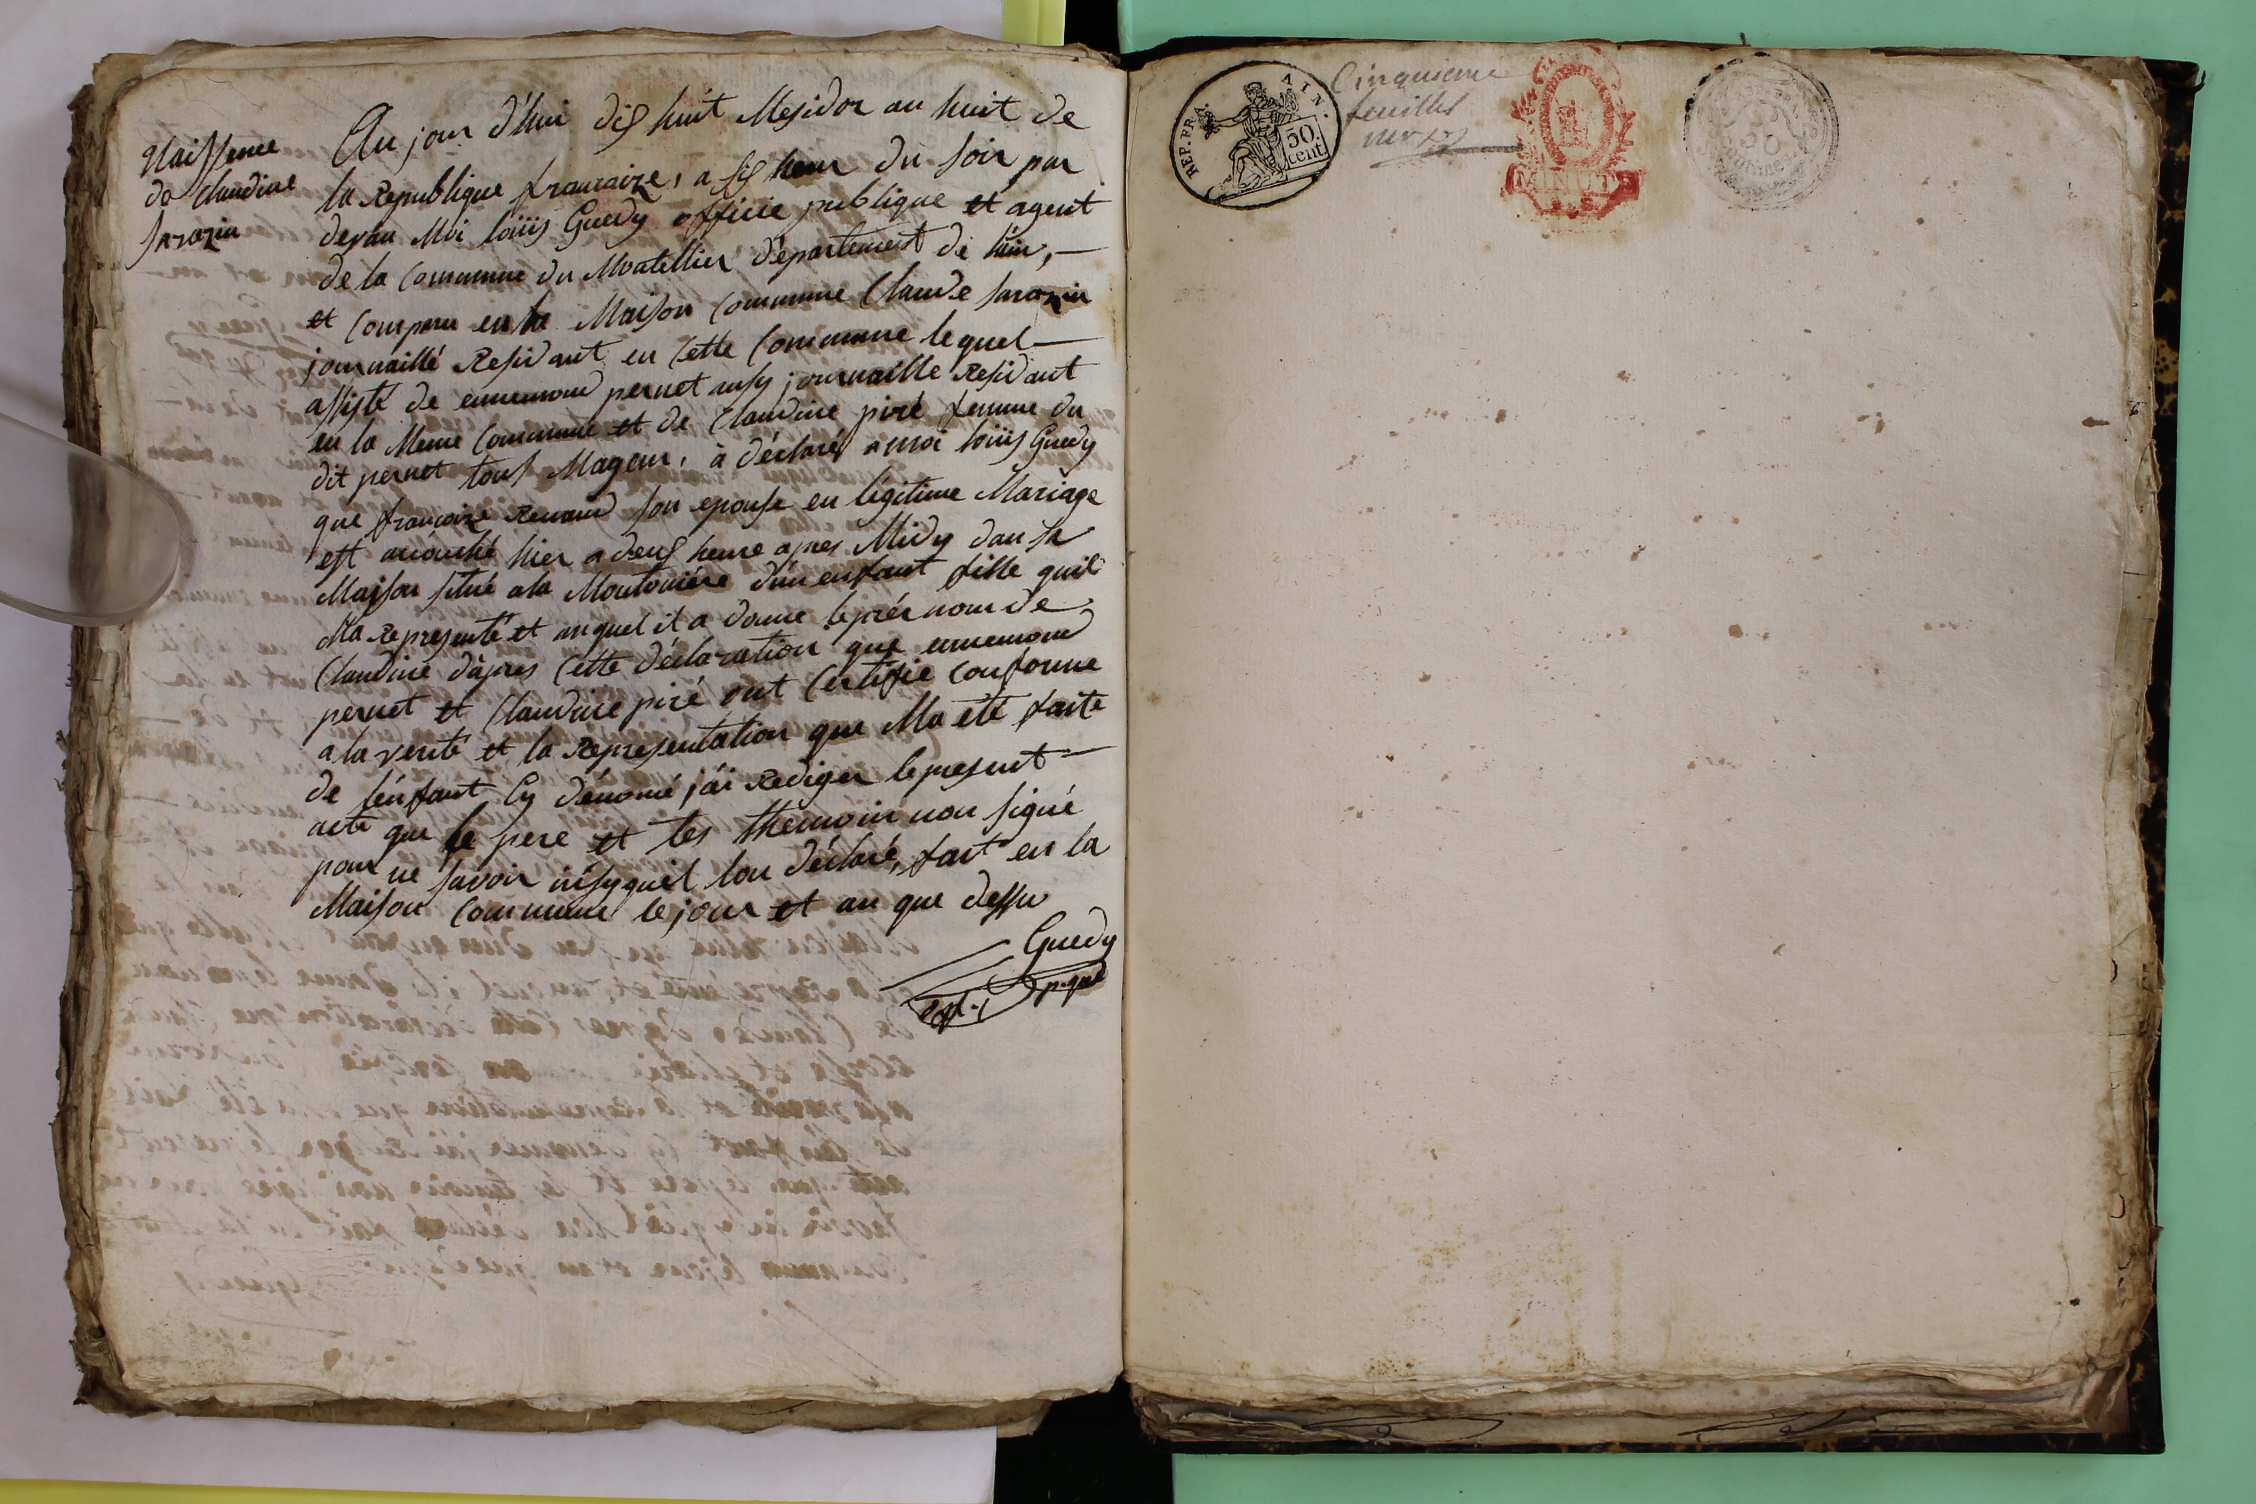 Naissence
de Claudine
Sarazin
Au jour d'hui dix huit Mesidor an huit de
la Republique francaize, a six heur du soir par
devau Moi louis Guedy officie publique et agent
de la Commune du Montellier département de lain,
et Comparu en la Maison Commune Claude Sarazin
journaillé Resident en Cette Commune lequel
assisté de ennemond pernet ausy journaille Resident
en la Meme Commune et de Claudine piré femme du
dit pernet tous Mageur, à déclaré a moi louis Guedy
que francoize Renaud son epouse en légitime Mariage
est acouché hier a deux heure apres Midy dan sa
Maison situé a la Moutoniére d'un enfant fille quil
Ma Representé et auquel il a donne le prénom de
Claudine d'apres Cette déclaration que ennemond
pernet et Claudine piré ont Certifie Conforme
a la verité et la Representation que Ma eté faite
de l'enfant Cy dénomé j'ai Rediger le present
acte que le pere et les themoin non signé
pour ne savoir insy quil lon déclaré, fait en la
Maison Commune le jour et an que dessu
Guedy
REP. FRA. 
50.
cent.
Cinquieme
feuillet